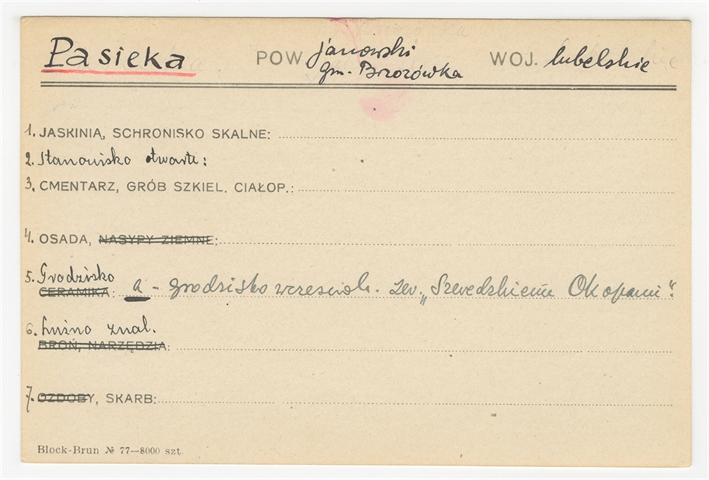 Pasieka POW. janowski WOJ. lubelskie
gm. Brzozówka
1. JASKINIA, SCHRONISKO SKALNE:
2. Stanowisko otwarte:
3. CMENTARZ, GRÓB SZKIEL. CIAŁOP.:
4. OSADA, NASYPY ZIEMNE:
5. Grodzisko
CERAMIKA: a - grodzisko wczesnośr. zw. „Szwedzkiemi Okopami".
6. Luźno znal.
BROŃ, NARZĘDZIA:
7. OZDOBY, SKARB:
Block-Brun № 77—8000 szt.